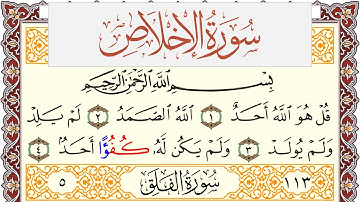 سُورَةُ الإِخْلَاصِ
بِسْمِ اللَّهِ الرَّحْمَٰنِ الرَّحِيمِ
قُلْ هُوَ اللَّهُ أَحَدٌ ١ اللَّهُ الصَّمَدُ ٢ لَمْ يَلِدْ
وَلَمْ يُولَدْ ٣ وَلَمْ يَكُن لَّهُ كُفُؤًا أَحَدٌ ٤
١١٣ سُورَةُ الفَلَقِ ٥